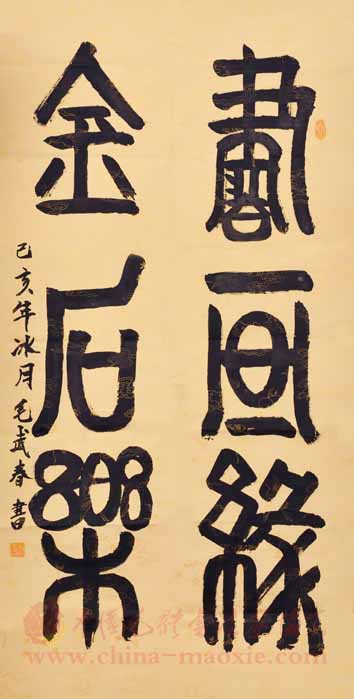 書畫緣
金石樂
己亥年冰月毛武春書
www.china-maoxie.com